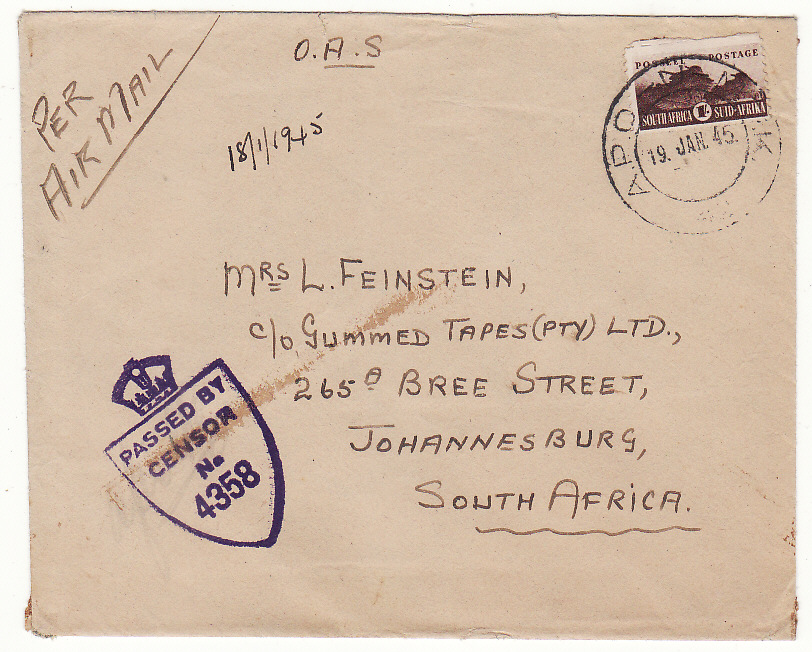 O.A.S
PER
AIR MAIL
18/1/1945
POSTAGE
SOUTH AFRICA 1/- SUID-AFRIKA
A.P.O.
19. JAN. 45.
MRS L. FEINSTEIN,
c/o, GUMMED TAPES (PTY) LTD.,
265ᴬ BREE STREET,
JOHANNESBURG,
SOUTH AFRICA.
PASSED BY
CENSOR
No
4358